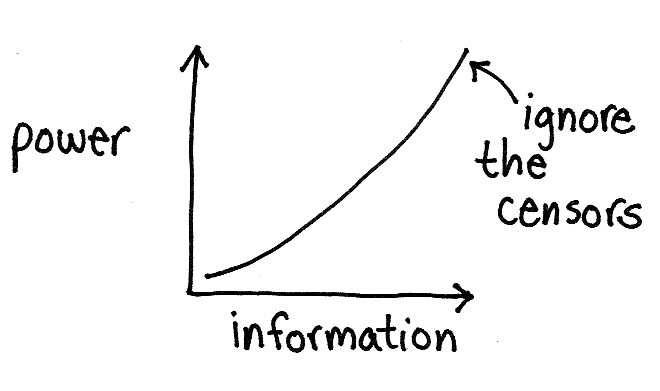 power
ignore
the
censors
information